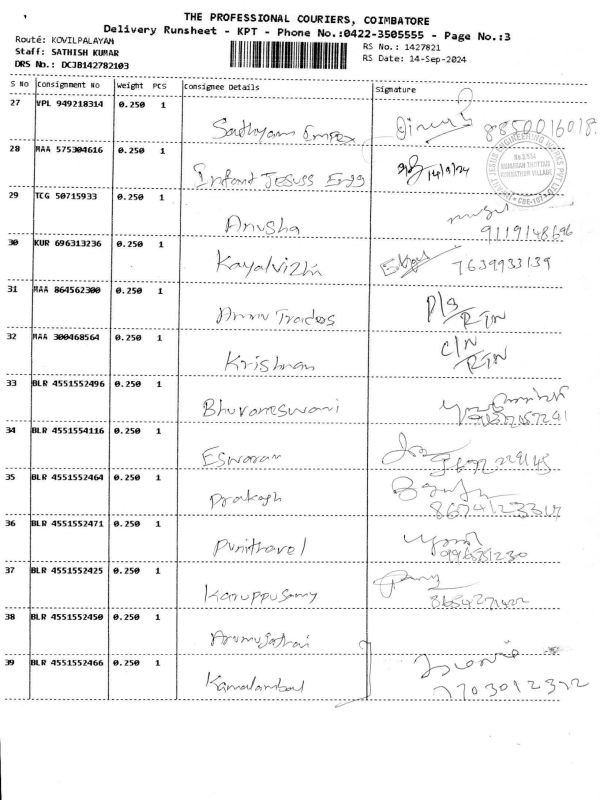 THE PROFESSIONAL COURIERS, COIMBATORE
Delivery Runsheet - KPT - Phone No.:0422-3505555 - Page No.:3
Route: KOVILPALAYAM
Staff: SATHISH KUMAR
DRS No.: DCJB142782103
RS No.: 1427821
RS Date: 14-Sep-2024
S No Consignment No Weight PCS Consignee Details Signature
27 VPL 949218314 0.250 1 Sathyam 8850016018
28 MAA 575304616 0.250 1 Infant Jesuss Engg 14/9/24
29 TCG 50715933 0.250 1 Anusha 9119148696
30 KUR 696313236 0.250 1 Kayalvizhi 7639933139
31 MAA 864562300 0.250 1 Ammu Traders D/S RTN
32 MAA 300468564 0.250 1 Krishnan C/N RTN
33 BLR 4551552496 0.250 1 Bhuvaneswari
34 BLR 4551554116 0.250 1 Eswaran
35 BLR 4551552464 0.250 1 Prakash
36 BLR 4551552471 0.250 1
37 BLR 4551552425 0.250 1 Karuppusamy
38 BLR 4551552450 0.250 1
39 BLR 4551552466 0.250 1 Kamalambal